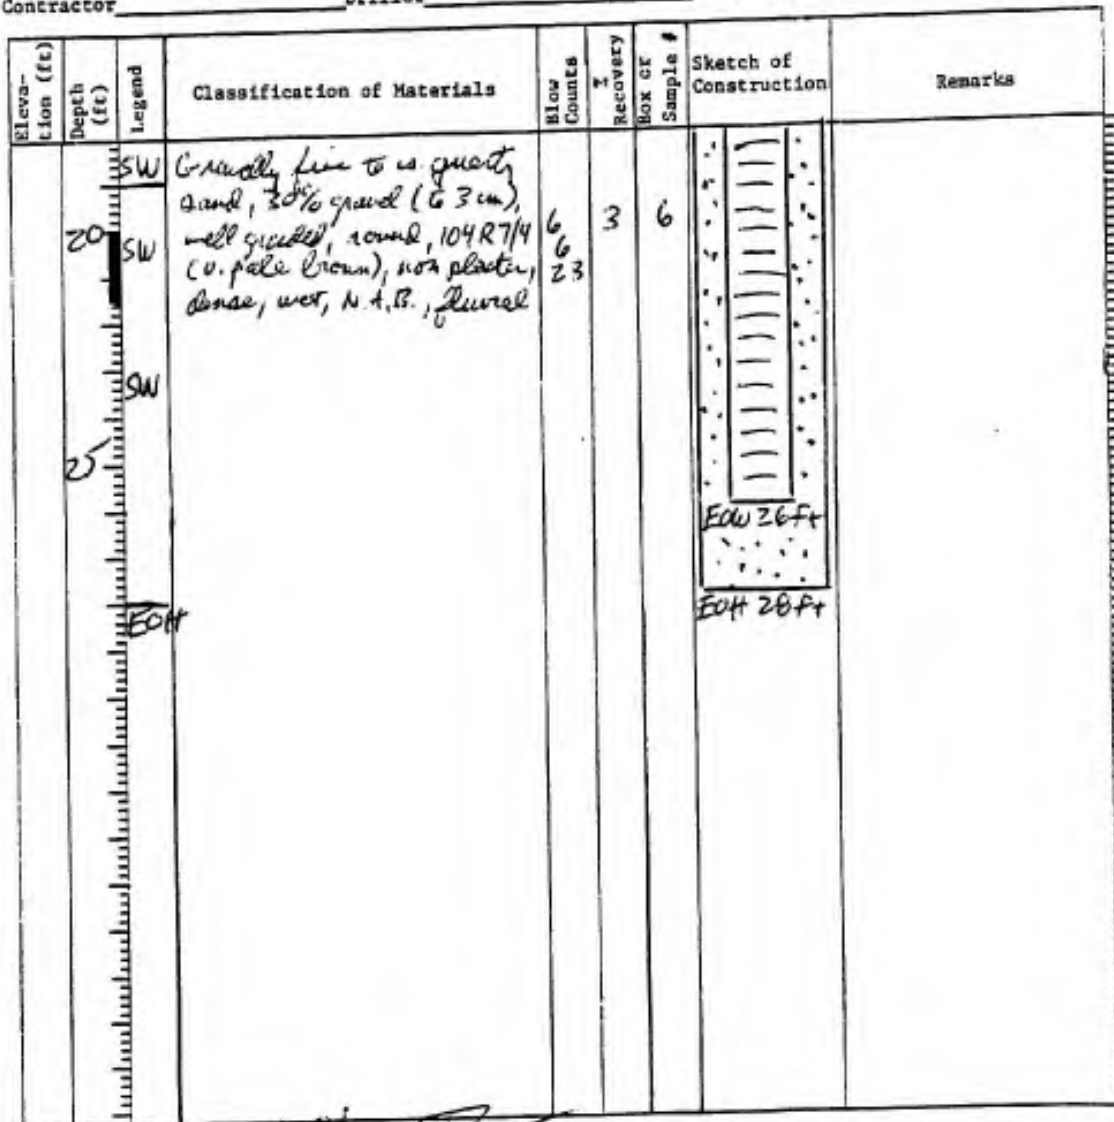 Contractor
Eleva-
tion (ft)
Depth
(ft)
Legend
Classification of Materials
Blow
Counts
Recovery
Box or
Sample #
Sketch of
Construction
Remarks
SW
Gravelly fine to quartz
sand, 30% gravel (to 3 cm),
20
SW
well graded, round, 10YR 7/4
6
3
6
(v. pale brown), non plastic,
6
dense, wet, N.A.B., fluvial
23
SW
25
EOW 26 Ft
EOH
EOH 28 Ft